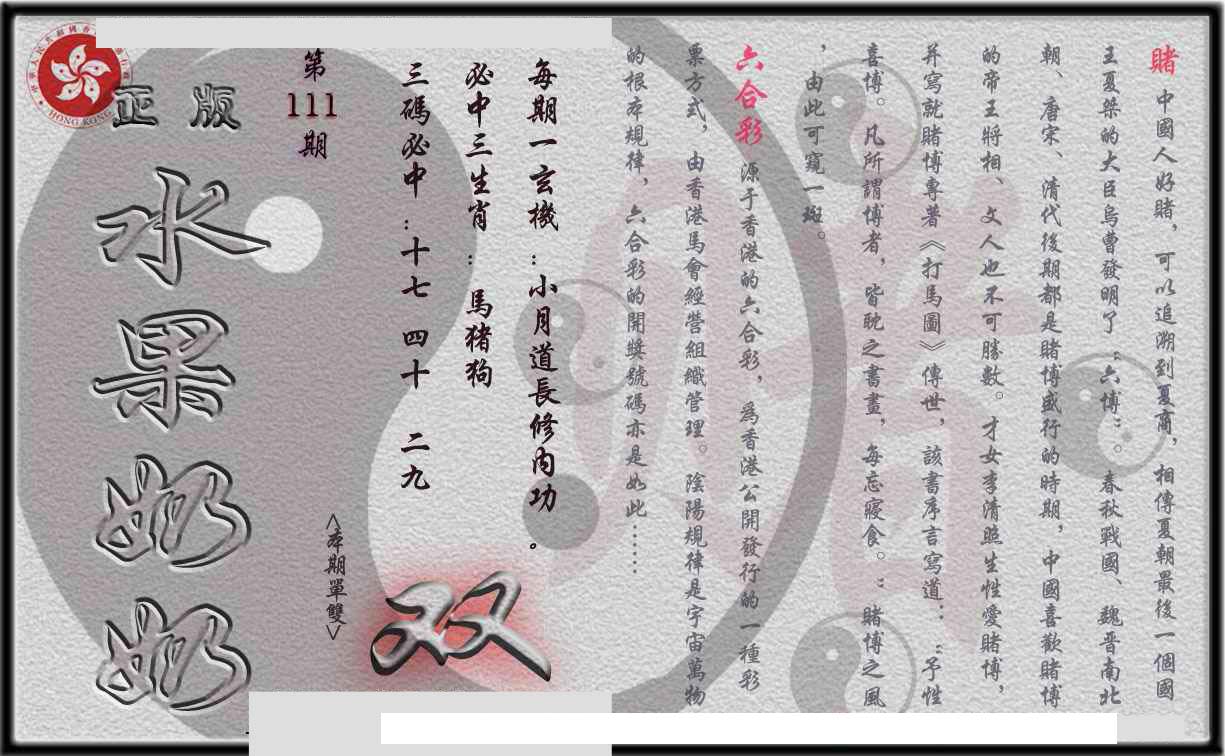 賭 中國人好賭，可以追溯到夏商，相傳夏朝最後一個國
王夏桀的大臣烏曹發明了“六博”。春秋戰國、魏晋南北
朝、唐宋、清代後期都是賭博盛行的時期，中國喜歡賭博
的帝王將相、文人也不可勝數。才女李清照生性愛賭博，
并寫就賭博專著《打馬圖》傳世，該書序言寫道：“予性
喜博。凡所謂博者，皆耽之晝畫，每忘寢食。”賭博之風
，由此可窺一斑。
六合彩 源于香港的六合彩，爲香港公開發行的一種彩
票方式，由香港馬會經營組織管理。陰陽規律是宇宙萬物
的根本規律，六合彩的開獎號碼亦是如此……
每期一玄機：小月道長修内功。
必中三生肖：馬猪狗
三碼必中：十七 四十 二九
<本期單雙>
双
第
111
期
正版
水果奶奶
HONG KONG